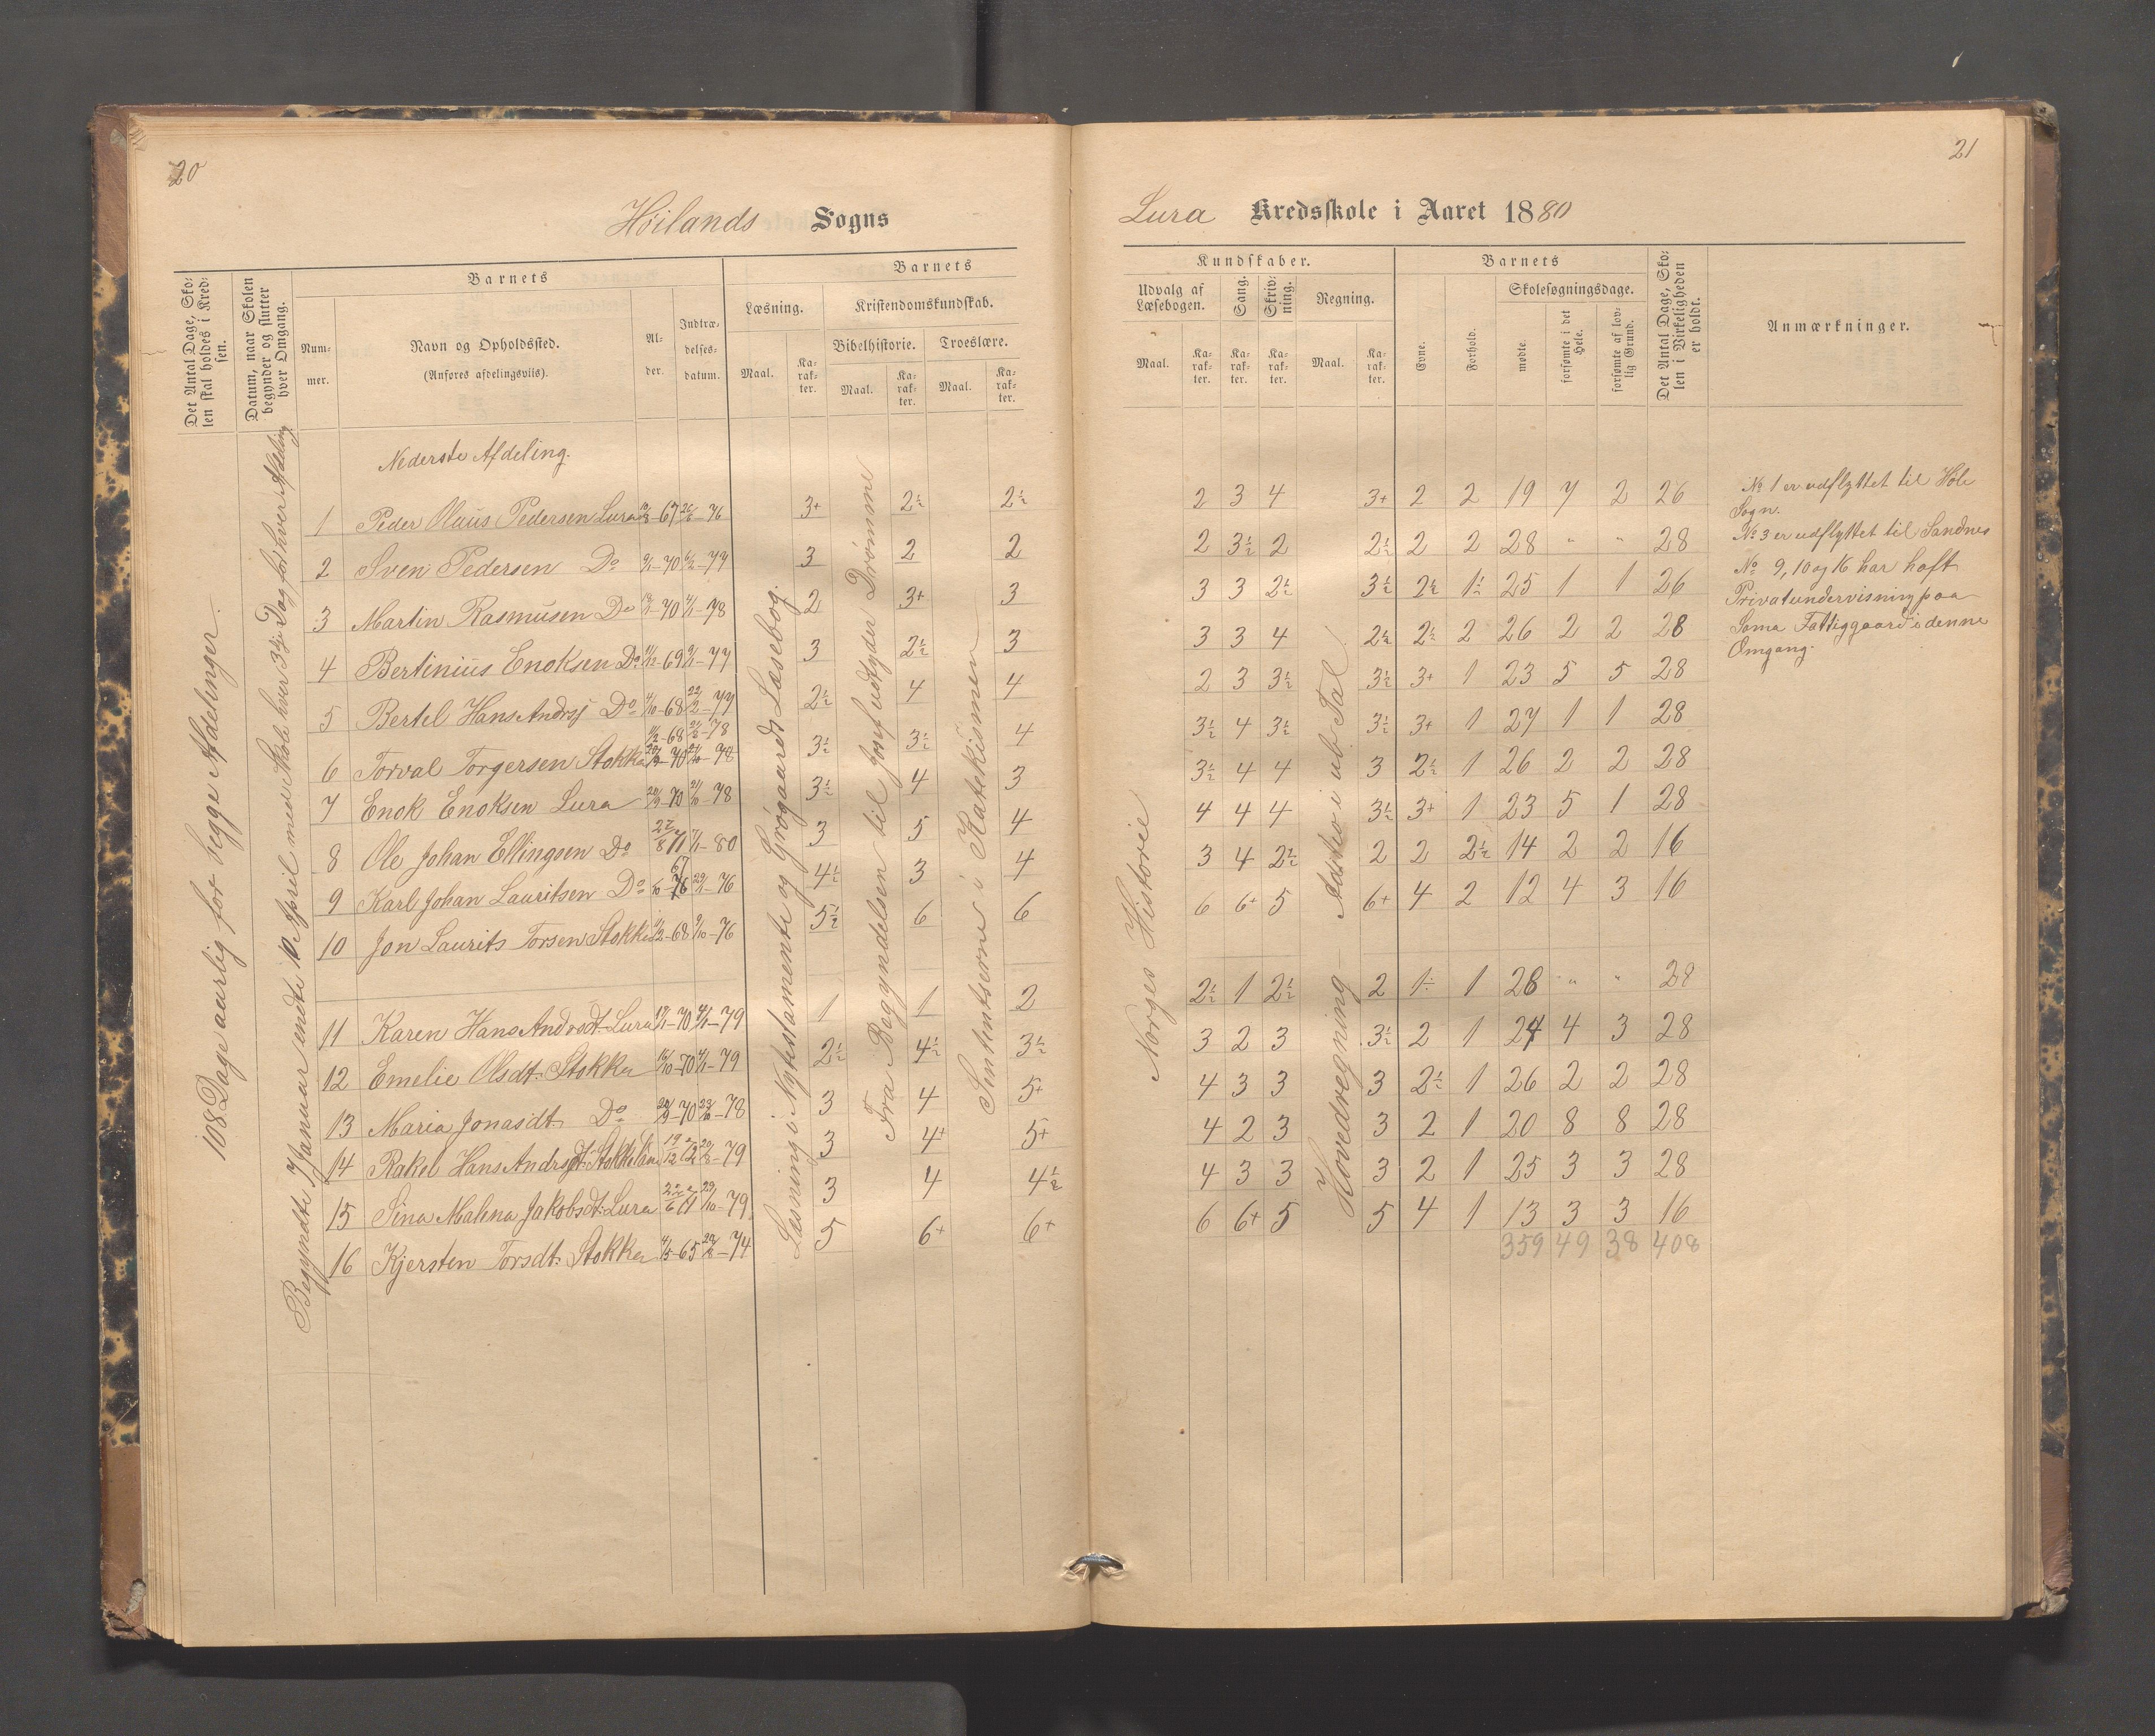 20
Höilands Sogns
Det Antal Dage, Skolen skal holdes i Kredsen.
Datum, naar Skolen begynder og slutter hver Omgang.
Barnets
Barnets
Nummer.
Navn og Opholdssted.
(Anføres afdelingsviis).
Alder.
Indtrædelsesdatum.
Læsning.
Kristendomskundskab.
Bibelhistorie.
Troeslære.
Maal.
Karakter.
Maal.
Karakter.
Maal.
Karakter.
108 Dage aarlig for begge Afdelinger.
Begyndte 7 Januar endte 10 April med Skole hver 3die Dag for hver Afdeling
Læsning i Nytestamente og Grøgaards Læsebog
Fra Begyndelsen til Josef udtyder Drømme
Sententserne i Katekismen
Nederste Afdeling.
1 Peder Olaus Pedersen Lura 67 76 3+ 2½ 2½
2 Sven Pedersen Do 70 77 3 2 2
3 Martin Rasmusen Do 70 78 2 3+ 3
4 Bertinius Enoksen Do 69 77 3 2½ 3
5 Bertel Hans Andrsj Do 4/10-68 22/2-77 2½ 4 4
6 Torval Torgersen Stokka 78 3½ 3½ 4
7 Enok Enoksen Lura 70 78 3½ 4 3
8 Ole Johan Ellingsen Do 27/8 71 80 3 5 4
9 Karl Johan Lauritsen Do 67 76 4½ 3 4
10 Jon Laurits Torsen Stokka 68 9/10-76 5½ 6 6
11 Karen Hans Andrsdt. Lura 70 79 1 1 2
12 Emelie Olsdt. Stokka 70 79 2½ 4½ 3½
13 Maria Jonasdt. Do 70 78 3 4 5+
14 Rakel Hans Andrsdt. 19/12 79 3 4+ 5+
15 Sina Malena Jakobsdt. Lura 22/6 71 29/10-79 3 4 4½
16 Kjersten Torsdt. Stokka 4/5-65 74 5 6+ 6+
21
Lura Kredsskole i Aaret 1880
Kundskaber.
Barnets
Udvalg af Læsebogen.
Sang.
Skrivning.
Regning.
Evne.
Forhold.
Skolesøgningsdage.
mødte.
forsømte i det Hele.
forsømte af lovlig Grund.
Det Antal Dage, Skolen i Virkeligheden er holdt.
Anmærkninger.
Maal.
Karakter.
Karakter.
Karakter.
Maal.
Karakter.
Norges Historie
Hovedregning - Additio i ub. Tal!
2 3 4 3+ 2 2 19 7 2 26
2 3½ 2 2½ 2 2 28 " " 28
3 3 2½ 3½ 2½ 1÷ 25 1 1 26
3 3 4 2½ 2½ 2 26 2 2 28
2 3 3½ 3½ 3+ 1 23 5 5 28
3½ 4 3½ 3½ 3+ 1 27 1 1 28
3½ 4 4 3 2½ 1 26 2 2 28
4 4 4 3½ 3+ 1 23 5 1 28
3 4 2½ 2 2 2½ 14 2 2 16
6 6+ 5 6+ 4 2 12 4 3 16
2½ 1 2½ 2 1÷ 1 28 " " 28
3 2 3 3½ 2 1 24 4 3 28
4 3 3 3 2½ 1 26 2 2 28
4 2 3 3 2 1 20 8 8 28
4 3 3 3 2 1 25 3 3 28
6 6+ 5 5 4 1 13 3 3 16
359 49 38 408
No 1 er udflyttet til Höle
Sogn.
No 3 er udflyttet til Sandnes
No 9, 10 og 16 har haft
Privatundervisning paa
Soma Fattiggaard i denne
Omgang.